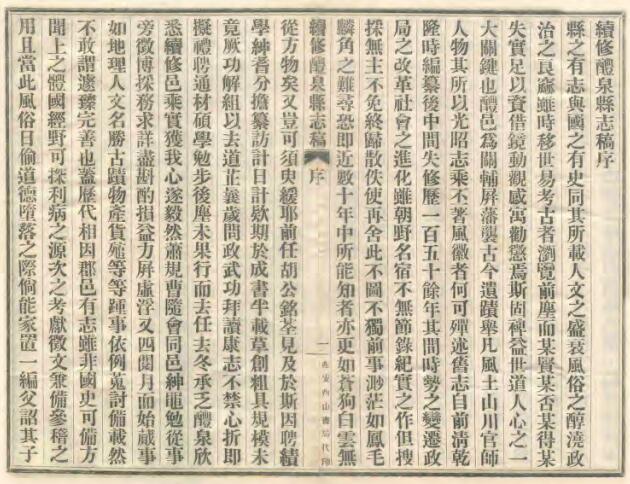 續修醴泉縣志稿序
縣之有志與國之有史同其所載人文之盛衰風俗之醇澆政
治之良窳雖時移世易考古者瀏覽前塵而某賢某否某得某
失實足以資借鏡動觀感寓勸懲焉斯固裨益世道人心之一
大關鍵也醴邑為關輔屏藩襲古今遺蹟舉凡風土山川官師
人物其所以光昭志乘不著風徽者何可殫述舊志自前清乾
隆時編纂後中間失修歷一百五十餘年其間時勢之變遷政
局之改革社會之進化雖朝野名宿不無節錄紀實之作但搜
採無主不免終歸散佚使再舍此不圖不獨前事渺茫如鳳毛
麟角之難尋恐即近數十年中所能知者亦更如蒼狗白雲無
續修醴泉縣志稿 序 一 西安西山書局代印
從方物矣又豈可須臾緩耶前任胡公銘荃見及於斯因聘績
學紳耆分擔纂訪計日計欵期於成書半載草創粗具規模未
竟厥功解組以去道芷襄歲問政武功拜讀康志不禁心折即
擬禮聘通材碩學勉步後塵未果行而去任去冬承乏醴泉欣
悉續修邑乘實獲我心遂毅然蕭規曹隨會同邑紳黽勉從事
旁徵博採務求詳盡斟酌損益力屏虛浮又四閱月而始蕆事
如地理人文名勝古蹟物產貨殖等等踵事依例蒐討備載然
不敢謂遽臻完善也蓋歷代相因郡邑有志雖非國史可備方
聞上之體國經野可探利病之源次之考獻徵文兼備參稽之
用且當此風俗日偷道德墮落之際倘能家置一編父詔其子